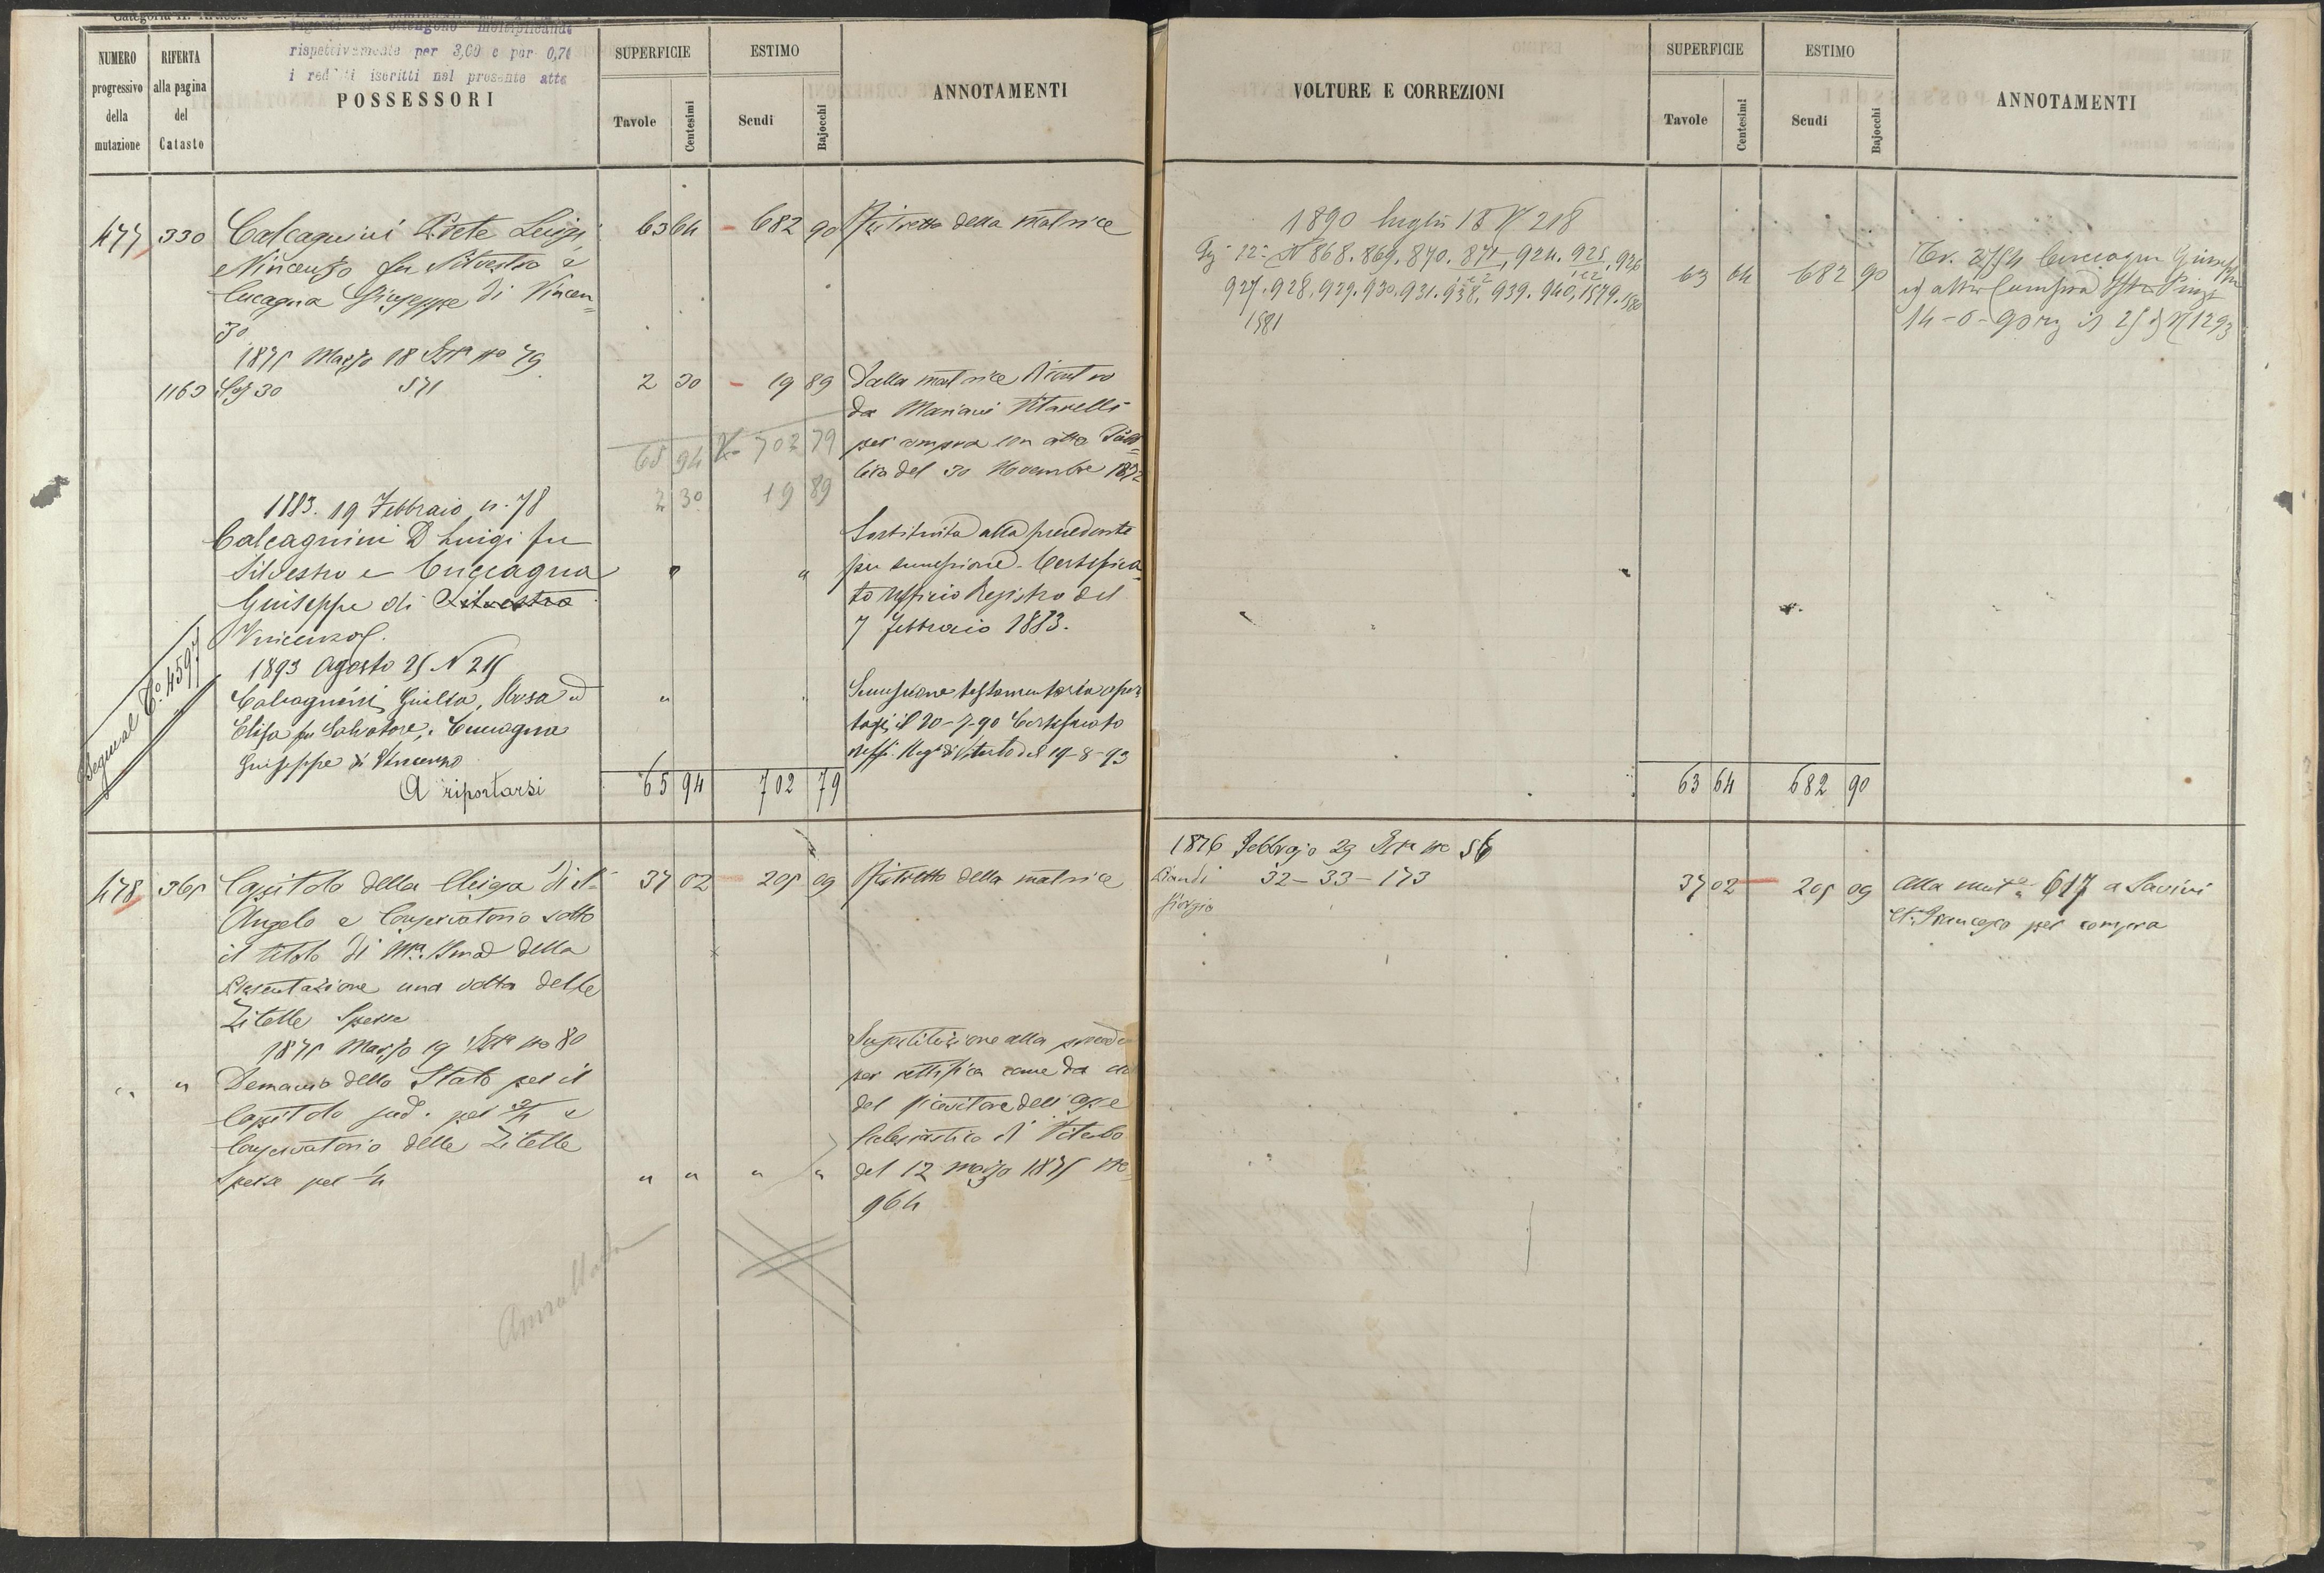 NUMERO progressivo della mutazione
RIFERTA alla pagina del Catasto
rispettivamente per 3,00 e per 0,76
i redditi iscritti nel presente atto
POSSESSORI
SUPERFICIE
Tavole
Centesimi
ESTIMO
Scudi
Bajocchi
ANNOTAMENTI
477 330 Calcagnini Prete Luigi, 63 64 - 682 90 Ristretto della Matrice
e Vincenzo fu Silvestro e
Cucagna Giuseppe di Vincen=
zo
1875 Marzo 18 No 79
1163 571 2 30 - 19 89 Dalla matrice
da Mariani Vitarelli
65 94 702 79 per compra con atto
del 30 Novembre 1872
2 30 19 89
1883. 19 Febbraio n. 78
Calcagnini D Luigi fu Sostituita alla precedente
Silvestro e Cuccagna per successione - Certifica
Giuseppe di Silvestro to Ufficio Registro del
Vincenzo. 7 Febbraio 1883.
1893 Agosto 25 N 215
Segue al C.o 4597
Calcagnini Giulia, Rosa ed Successione testamentaria aper
Elisa fu Salvatore, Cuccagna tasi il 20-7-90 Certificato
Giuseppe di Vincenzo Viterbo del 19-8-93
A riportarsi 65 94 702 79
478 365 Capitolo della Chiesa di S. 37 02 205 09 Ristretto della matrice
Angelo e Conservatorio sotto
il titolo di Ma. della
Presentazione una volta delle
Zitelle Sperse
1875 Marzo 19 No 80 Sostituzione alla
" " Demanio dello Stato per il per rettifica come da
Capitolo sud. per e del Ricevitore dell'Asse
Conservatorio delle Zitelle Ecclesiastico di Viterbo
Sperse per " " " " del 12 marzo 1875 No
964
Annullato
VOLTURE E CORREZIONI
SUPERFICIE
Tavole
Centesimi
ESTIMO
Scudi
Bajocchi
ANNOTAMENTI
1890 luglio 18 N 218
12 N 868. 869. 870. 871, 924. 925, 926 63 64 682 90 Cuccagna Giuseppe
927. 928. 929. 930. 931. 938, 939. 940, 1579. 1580 ed altri
1581 14-6-90 N 1293
63 64 682 90
1876 Febbrajo 29 No 56
32-33-173 37 02 - 205 09 Alla mut.e 617 a Savini
Giorgio Francesco per compra